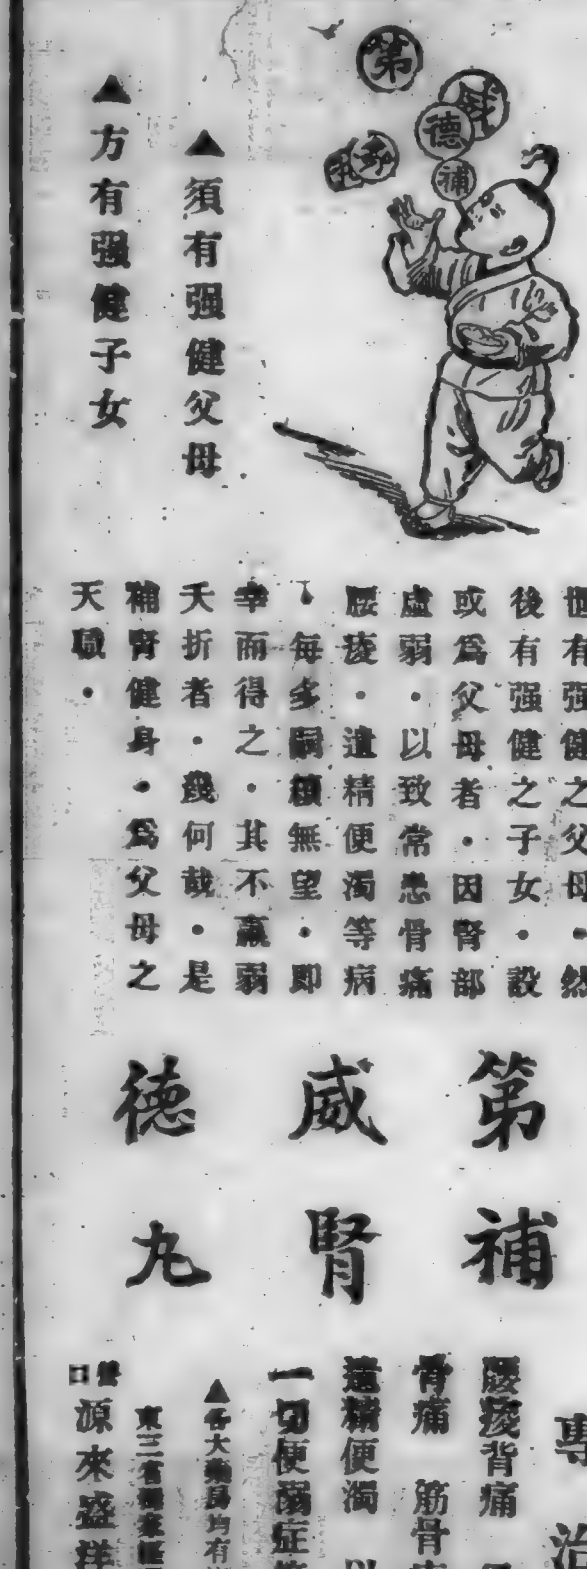 第
威
德
補
▲須有强健父母
▲方有强健子女
有强健之父母・然
後有强健之子女・設
或爲父母者・因腎部
虛弱・以致常患骨痛
腰痠・遺精便濁等病
、每多嗣續無望・即
幸而得之・其不羸弱
夭折者・幾何哉・是
補腎健身・爲父母之
天職・
第威德
補腎丸
專治
腰痠背痛
骨痛 筋骨
遺精便濁 以
一切便溺症
▲各大藥房均有
東三省
源來盛祥